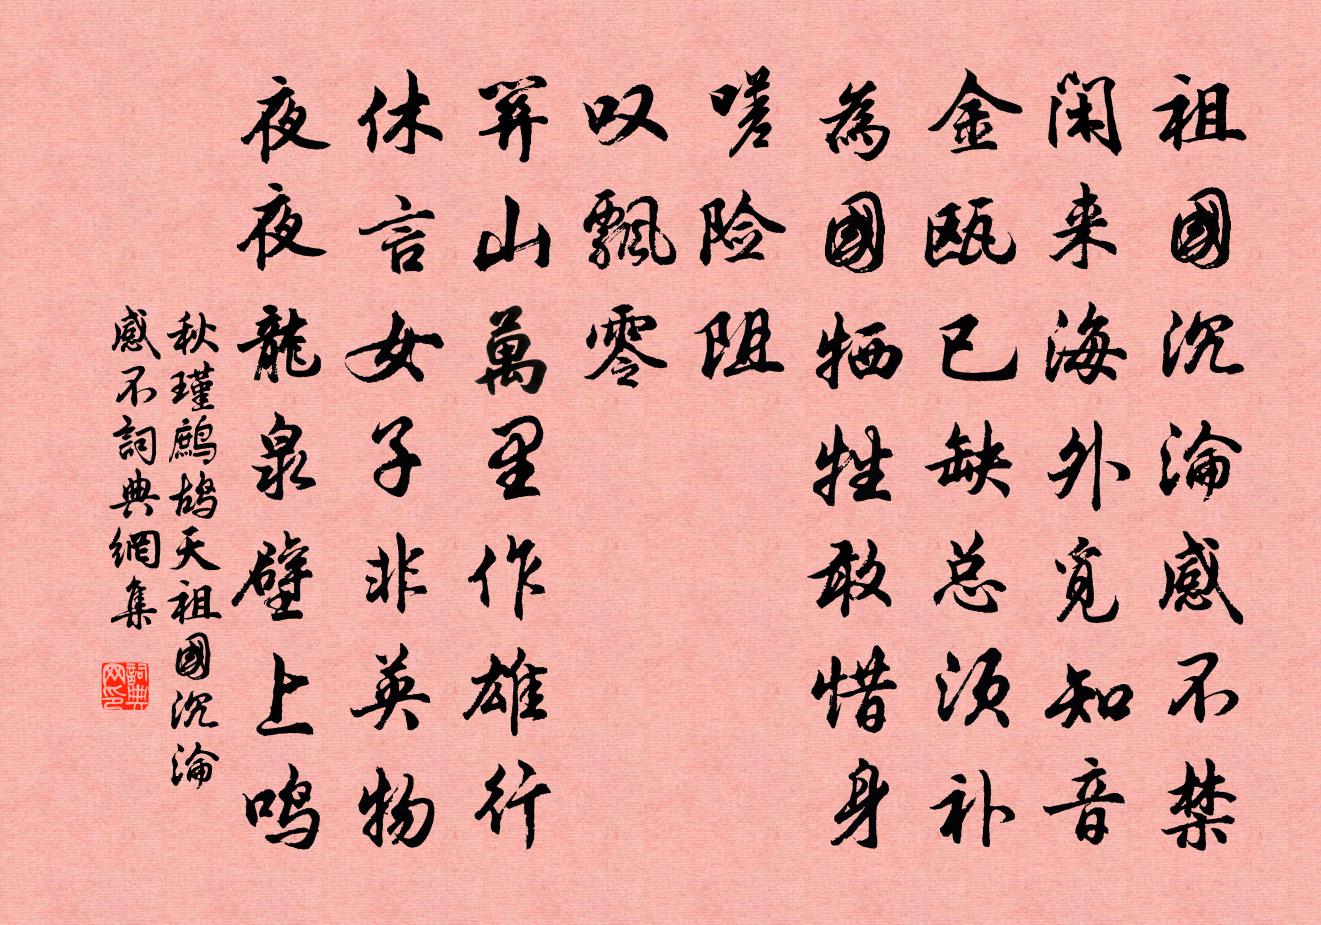 祖國沉淪感不禁
闲来海外觅知音
金瓯已缺总须补
為國牺牲敢惜身
嗟险阻
叹飘零
関山萬里作雄行
休言女子非英物
夜夜龍泉壁上鸣
秋瑾鷓鴣天祖國沉淪
感不詞典網集
詞典网印